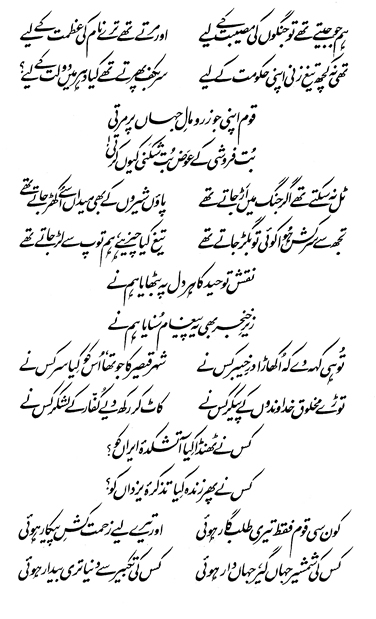 ہم جو جیتے تھے تو جنگوں کی مصیبت کے لیے اور مرتے تھے ترے نام کی عظمت کے لیے
تھی نہ کچھ تیغ زنی اپنی حکومت کے لیے سر بکف پھرتے تھے کیا دہر میں دولت کے لیے؟
قوم اپنی جو زر و مالِ جہاں پر مرتی
بُت فروشی کے عوَض بُت شکَنی کیوں کرتی!
ٹل نہ سکتے تھے اگر جنگ میں اَڑ جاتے تھے پاؤں شیروں کے بھی میداں سے اُکھڑ جاتے تھے
تجھ سے سرکش ہُوا کوئی تو بگڑ جاتے تھے تیغ کیا چیز ہے ہم توپ سے لڑ جاتے تھے
نقش توحید کا ہر دل پہ بٹھایا ہم نے
زیرِ خنجر بھی یہ پیغام سُنایا ہم نے
تُو ہی کہہ دے کہ اُکھاڑا درِ خیبر کس نے شہر قیصر کا جو تھا، اُس کو کیا سر کس نے
توڑے مخلوق خداوندوں کے پیکر کس نے کاٹ کر رکھ دیے کُفّار کے لشکر کس نے
کس نے ٹھنڈا کیا آتشکدۂ ایراں کو؟
کس نے پھر زندہ کیا تذکرۂ یزداں کو؟
کون سی قوم فقط تیری طلب گار ہوئی اور تیرے لیے زحمت کشِ پیکار ہوئی
کس کی شمشیر جہاں گیر، جہاں دار ہوئی کس کی تکبیر سے دنیا تری بیدار ہوئی